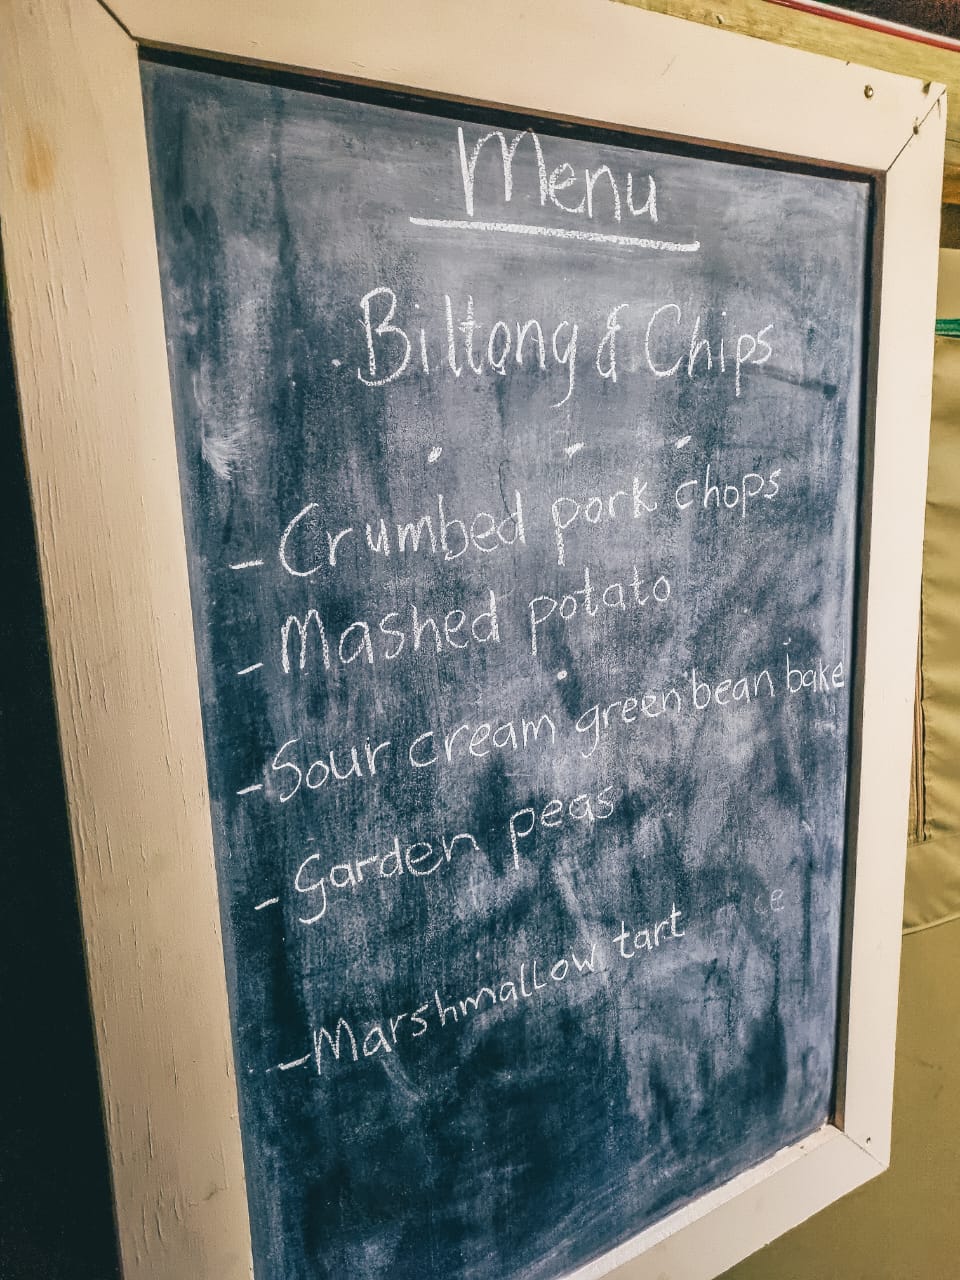 Menu
Biltong & Chips
- Crumbed pork chops
- Mashed potato
- Sour cream green bean bake
- Garden peas
- Marshmallow tart